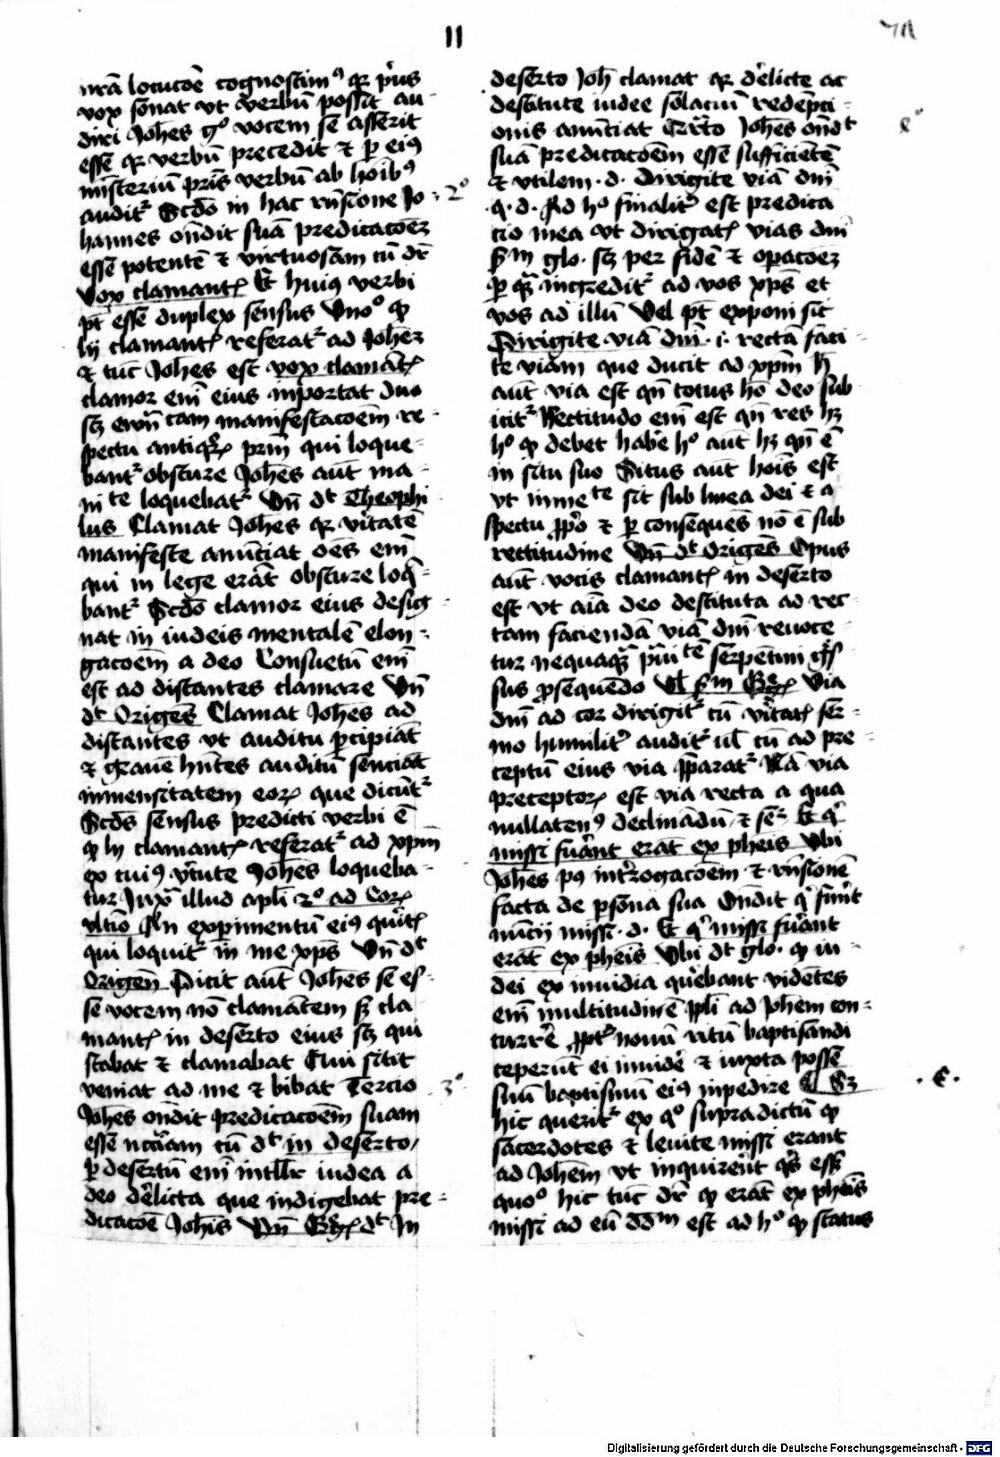 11
nrā locucōe cognoscimꝰ qr pʳus
vox sonat vt verbū possit au-
diri Johēs gͦ vocem se asserit
esse qr verbū precedit ⁊ ꝑ eiꝰ
misteriū pris verbū ab hoībꝰ
auditʳ Scdō in hac rn̄sione Jo-
hannes on̄dit suā predicacōeꝫ
esse potentē ⁊ virtuosam cū dt̄
Vox clamantꝭ Et huiꝰ verbi
pt̄ esse duplex sensus Vnoͦ ꝙ
ly clamantꝭ referatʳ ad Joheꝫ
⁊ tūc Johēs est vox clamātꝭ
clamor em̄ eius inportat duo
scꝫ manifestacōem re-
spectu antiqꝝ prim̄ qui loque-
bantʳ obscure Johēs aut̄ ma-
niᵗᵉ loquebatʳ Vn̄ dᵗ Theophi
lus Clamat Johēs qr vitatē
manifeste anūciat oēs em̄
qui in lege erāt obscure loq̄-
bantʳ Scdō clamor eius desig-
nat in iudeis mentalē elon-
gacōem a deo Consuetū em̄
est ad distantes clamare Vn̄
dᵗ Origenēs Clamat Johēs ad
distantes vt auditu ꝑcipiāt
⁊ grauē hn̄tes auditū senciāt
inmensitatem eoꝝ que dicūtʳ
Scds sensus predicti verbi ē
ꝙ ly clamantꝭ referatʳ ad xp̄m
ex cuiꝰ vʳtute Johēs loqueba-
tur Juxᵃ illud apl̄i 2ͦ ad Coꝝ
vltīo An experimentū eiꝰ queritꝭ
qui loquitʳ in me xp̄s Vn̄ dᵗ
Origen̄ Dicit aut̄ Johēs se es-
se vocem nō clamātem sꝫ cla
mantꝭ in deserto eius scꝫ qui
stabat ⁊ clamabat Qui sitit
veniat ad me ⁊ bibat Tercio
Johēs ondit predicacōem suam
esse ncc̄āriam cū dᵗ in deserto
ꝑ desertū em̄ intll̄r iudea a
deo dʳelicta que indigebat pre-
dicacōe Joh̄is Vn̄ Greꝭ dᵗ In
2ͦ
3ͦ
deserto Joh̄ clamat qr dʳelicte ac
destitute iudee solaciū redēpci-
onis anūciat Johēs on̄dᵗ
suā predicacōem esse sufficientē
⁊ vtilem .d. Dirigite viā dn̄i
.q.d. Ad hͦ finalitʳ est predica
cio mea vt dirigatꝭ vias dn̄i
sᵐ glo. scꝫ per fidē ⁊ opacōeꝫ
ꝑ qᵃꝫ ingreditʳ ad vos xp̄s et
vos ad illū Vel pt̄ exponi sic
Dirigite viā dn̄i .i. rectā faci-
te viam que ducit ad xp̄m hͨ
aut̄ via est qn̄ totus hō deo sub
icitʳ Rectitudo em̄ est qn̄ res hꝫ
hͦ ꝙ debet habēe hͦ aut̄ hꝫ qn̄ ē
in situ suo Situs aut̄ hoīs est
vt inmeᵗᵉ sit sub linea dei ⁊ a
spectu ꝓpͦ ⁊ ꝑ consequēs nō ē sub
rectitudine Vn̄ dᵗ Origenēs Opus
aut̄ vocis clamantꝭ in deserto
est vt aīa deo destituta ad rec
tam faciendā viā dn̄i reuoce-
tur nequaqᵃꝫ pᵘᵃᵗᵉ serpentini gʳs
sus ꝓsequēdo Vl̄ sᵐ Greꝭ Via
dn̄i ad cor dirigitʳ cū vʳitatꝭ ser-
mo humilitʳ auditʳ ul̄ cū ad pre-
ceptū eius via p̄paratʳ Nā via
preceptoꝝ est via recta a qua
nullatenꝰ declinādū ⁊ sēʳ Et qʳ
missi fuʳant erāt ex pheis Vbi
Johēs pꝰ intʳrogacōem ⁊ rn̄sionē
facta de ꝑsona sua Ondit qʳ fuʳint
nūcij missi .d. Et qʳ missi fuʳant
erāt ex pheis Vbi dᵗ glo. ꝙ iu-
dei ex inuidia querebant vidētes
em̄ multitudinē pl̄i ad Joh̄em con-
currʳe ꝓptʳ nouū ritū baptisandi
ceperūt ei inuidēʳ ⁊ iuxta posse
suū baptismū eiꝰ inpedire Sꝫ
hic queritʳ ex qͦ supradictū ꝙ
sacerdotes ⁊ leuite missi erant
ad Johem vt inquirerūt qʳs esset
quoͦ hic tūc dr̄ ꝙ erāt ex pheis
missi ad eū ddᵐ est ad hͦ ꝙ status
.ϵ.
Digitalisierung gefördert durch die Deutsche Forschungsgemeinschaft - DFG